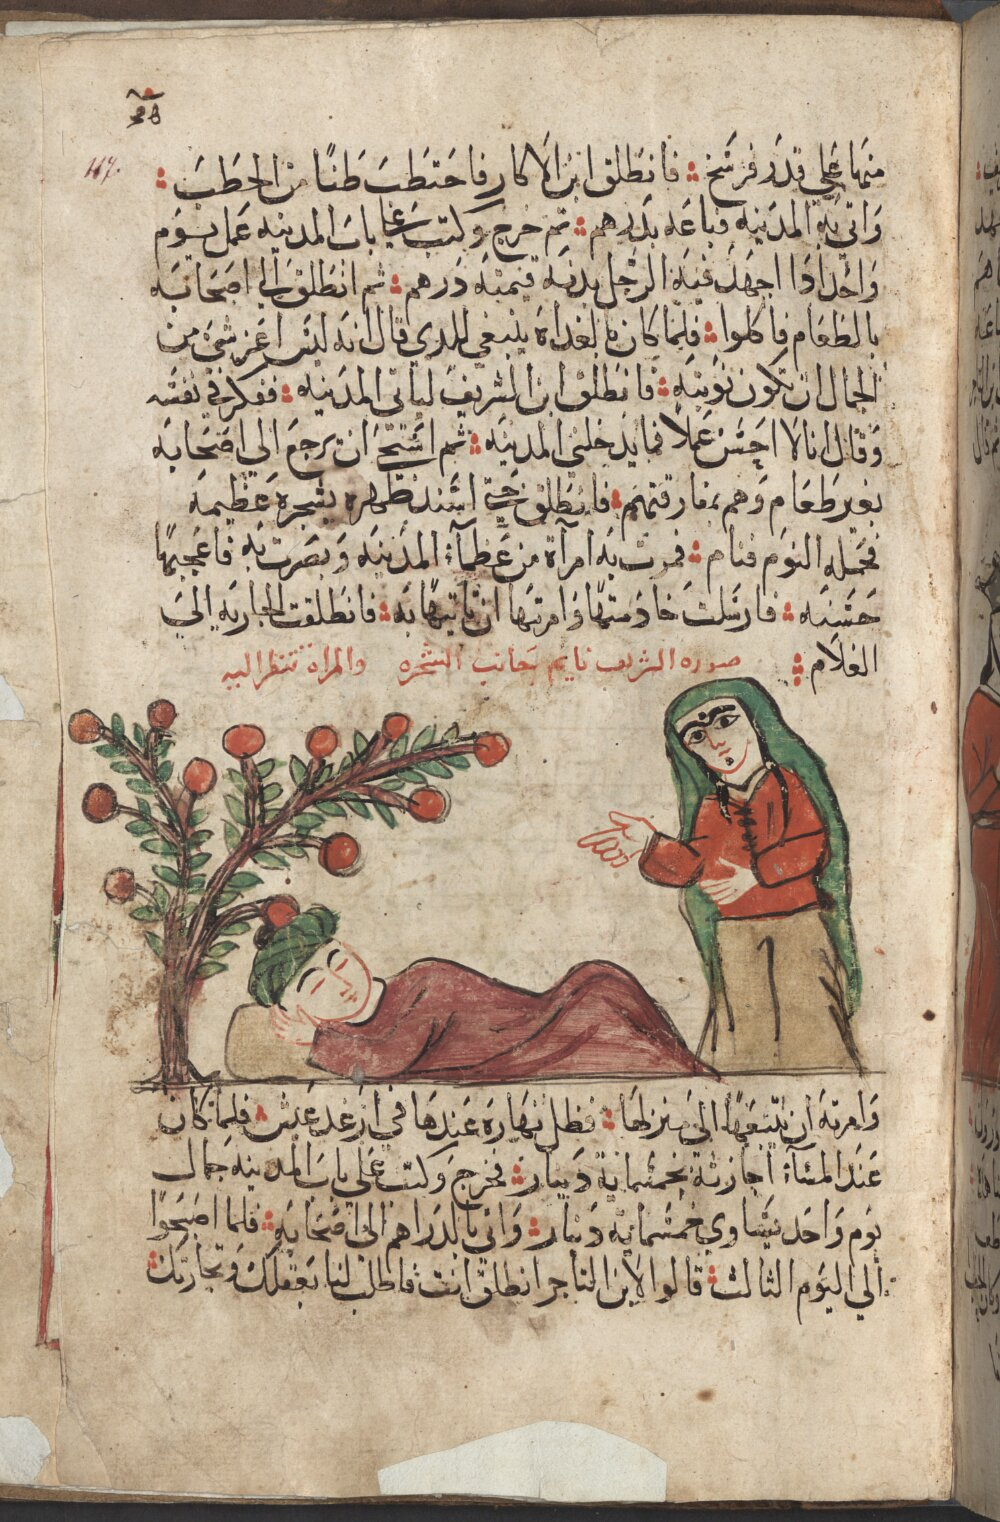 117.
منها علي قدر فرسخ فانطلق ابن الاكار فاحتطب طنًا من الحطب
واتي به المدينه فباعه بدرهم ثم خرج وكتب علي باب المدينه عمل يوم
واحد اذا اجهد فيه الرجل بدنه قيمته درهم ثم انطلق الي اصحابه
بالطعام فاكلوا فلما كان بالغداه ينبغي للذي قال انه ليس اعز شيء من
الجمال ان تكون نوبته فانطلق ابن الشريف لياتي المدينه ففكر في نفسه
وقال انا لا احسن عملاً فما يدخلني المدينه ثم استحي ان يرجع الي اصحابه
بغير طعام وهم بمفارقتهم فانطلق حتي اسند ظهره بشجره عظيمه
فحمله النوم فنام فمرت به امرآة من عظمآء المدينه وبصرت به فاعجبها
حسنه فارسلت خادمتها وامرتها ان تاتيها به فانطلقت الجاريه الي
الغلام صوره الشريف نايم بجانب الشجره والمراه تنظر اليه
وامرته ان يتبعها الي منزلها فظل نهاره عندها في ارغد عيش فلما كان
عند المسآء اجازته بخمسماية دينار فخرج وكتب علي باب المدينه جمال
يوم واحد يساوي خمسمايه دينار واتي بالدراهم الي اصحابه فلما اصبحوا
الي اليوم الثالث قالوا لابن التاجر انطلق انت فاطلب لنا بعقلك وتجارتك